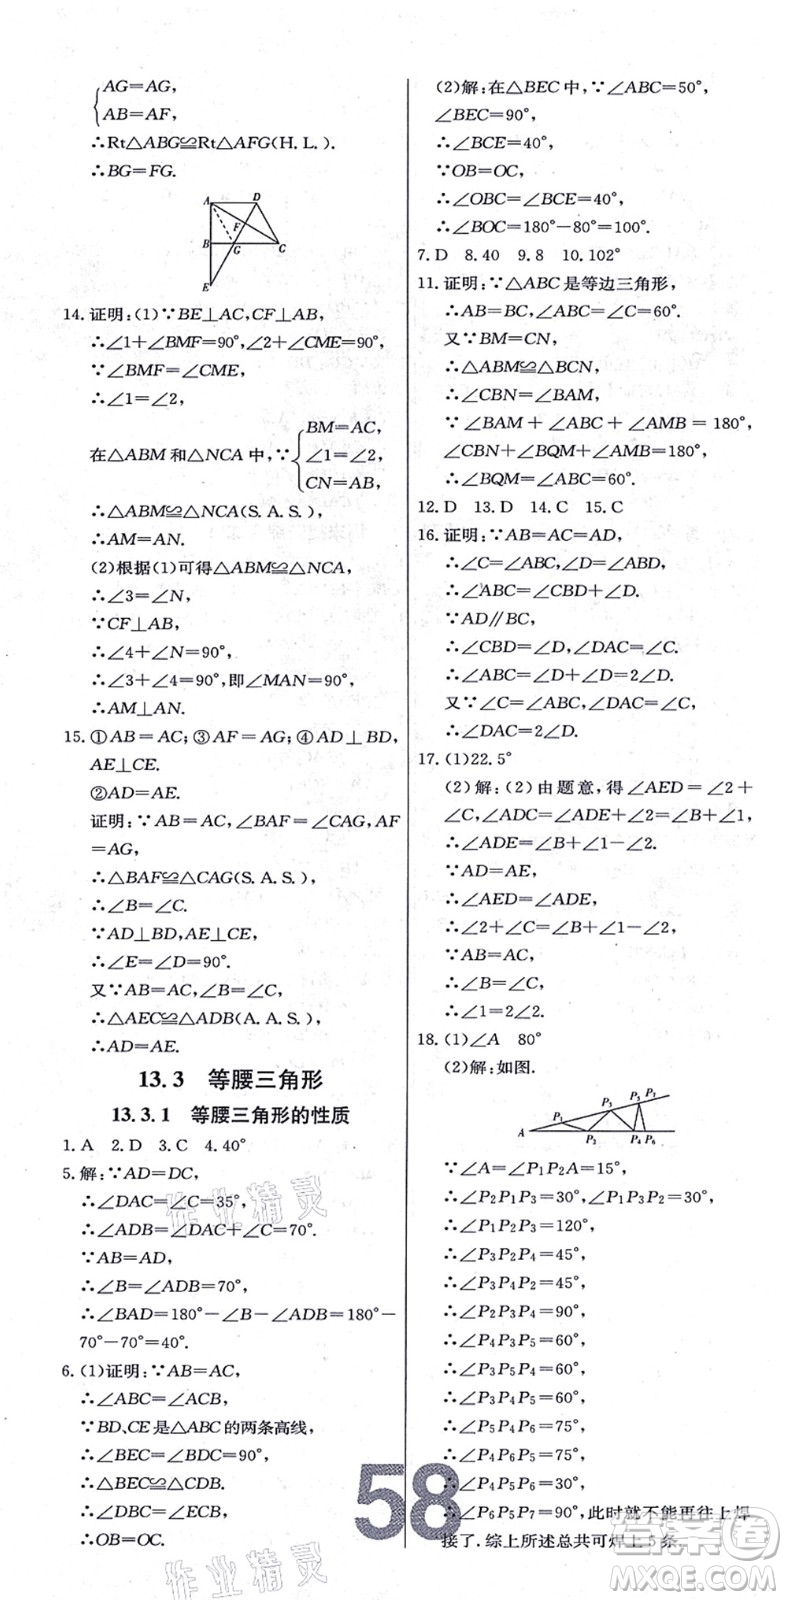 AG=AG,
AB=AF,
∴Rt△ABG≌Rt△AFG(H.L.).
∴BG=FG.
A D
F
B G C
E
14.证明:(1)∵BE⊥AC,CF⊥AB,
∴∠1+∠BMF=90°,∠2+∠CME=90°,
∵∠BMF=∠CME,
∴∠1=∠2,
BM=AC,
在△ABM和△NCA中,∵ ∠1=∠2,
CN=AB,
∴△ABM≌△NCA(S.A.S.),
∴AM=AN.
(2)根据(1)可得△ABM≌△NCA,
∴∠3=∠N,
∵CF⊥AB,
∴∠4+∠N=90°,
∴∠3+∠4=90°,即∠MAN=90°,
∴AM⊥AN.
15.①AB=AC;③AF=AG;④AD⊥BD,
AE⊥CE.
②AD=AE.
证明:∵AB=AC,∠BAF=∠CAG,AF
=AG,
∴△BAF≌△CAG(S.A.S.),
∴∠B=∠C.
∵AD⊥BD,AE⊥CE,
∴∠E=∠D=90°.
又∵AB=AC,∠B=∠C,
∴△AEC≌△ADB(A.A.S.),
∴AD=AE.
13.3 等腰三角形
13.3.1 等腰三角形的性质
1.A 2.D 3.C 4.40°
5.解:∵AD=DC,
∴∠DAC=∠C=35°,
∴∠ADB=∠DAC+∠C=70°.
∵AB=AD,
∴∠B=∠ADB=70°,
∴∠BAD=180°-∠B-∠ADB=180°-
70°-70°=40°.
6.(1)证明:∵AB=AC,
∴∠ABC=∠ACB,
∵BD、CE是△ABC的两条高线,
∴∠BEC=∠BDC=90°,
∴△BEC≌△CDB.
∴∠DBC=∠ECB,
∴OB=OC.
(2)解:在△BEC中,∵∠ABC=50°,
∠BEC=90°,
∴∠BCE=40°,
∵OB=OC,
∴∠OBC=∠BCE=40°,
∴∠BOC=180°-80°=100°.
7.D 8.40 9.8 10.102°
11.证明:∵△ABC是等边三角形,
∴AB=BC,∠ABC=∠C=60°.
又∵BM=CN,
∴△ABM≌△BCN,
∴∠CBN=∠BAM,
∵∠BAM+∠ABC+∠AMB=180°,
∠CBN+∠BQM+∠AMB=180°,
∴∠BQM=∠ABC=60°.
12.D 13.D 14.C 15.C
16.证明:∵AB=AC=AD,
∴∠C=∠ABC,∠D=∠ABD,
∴∠ABC=∠CBD+∠D.
∵AD∥BC,
∴∠CBD=∠D,∠DAC=∠C.
∴∠ABC=∠D+∠D=2∠D.
又∵∠C=∠ABC,∠DAC=∠C,
∴∠DAC=2∠D.
17.(1)22.5°
(2)解:(2)由题意,得∠AED=∠2+
∠C,∠ADC=∠ADE+∠2=∠B+∠1,
∴∠ADE=∠B+∠1-∠2.
∵AD=AE,
∴∠AED=∠ADE,
∴∠2+∠C=∠B+∠1-∠2.
∵AB=AC,
∴∠B=∠C,
∴∠1=2∠2.
18.(1)∠A 80°
(2)解:如图.
P1 P3 P5 P7
A P2 P4 P6
∵∠A=∠P1P2A=15°,
∴∠P2P1P3=30°,∠P1P3P2=30°,
∴∠P1P2P3=120°,
∴∠P3P2P4=45°,
∴∠P3P4P2=45°,
∴∠P2P3P4=90°,
∴∠P4P3P5=60°,
∴∠P3P5P4=60°,
∴∠P3P4P5=60°,
∴∠P5P4P6=75°,
∴∠P4P6P5=75°,
∴∠P4P5P6=30°,
∴∠P6P5P7=90°,此时就不能再往上焊
接了.综上所述总共可焊上5条.
58
作业精灵
作业精灵
答案圈
MXQE.COM